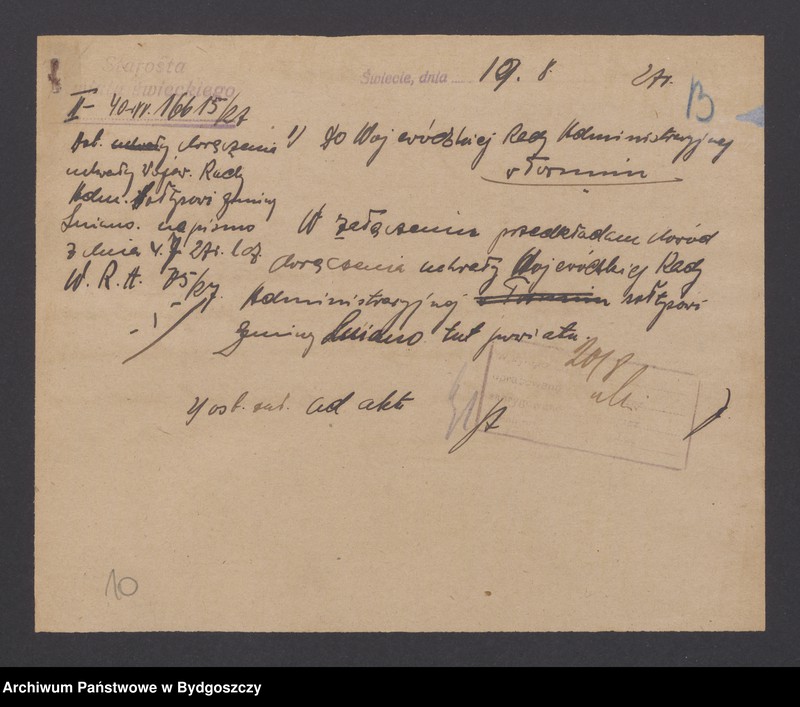 Starosta
Świecie, dnia 19. 8. 27 r.
świeckiego
II - 40 - 16615/27
B
doręczenia
uchwały Wojew. Rady
Adm. sołtysowi gminy
Lniano. na pismo
z dnia 4. 7 27 r. l.dz.
W. R. A. 75/27
1) Do Wojewódzkiej Rady Administracyjnej
w Toruniu
W załączeniu przedkładam dowód
doręczenia uchwały Wojewódzkiej Rady
Administracyjnej w Toruniu sołtysowi
gminy Lniano tut. powiatu.
20/8
ad akta
10
Archiwum Państwowe w Bydgoszczy